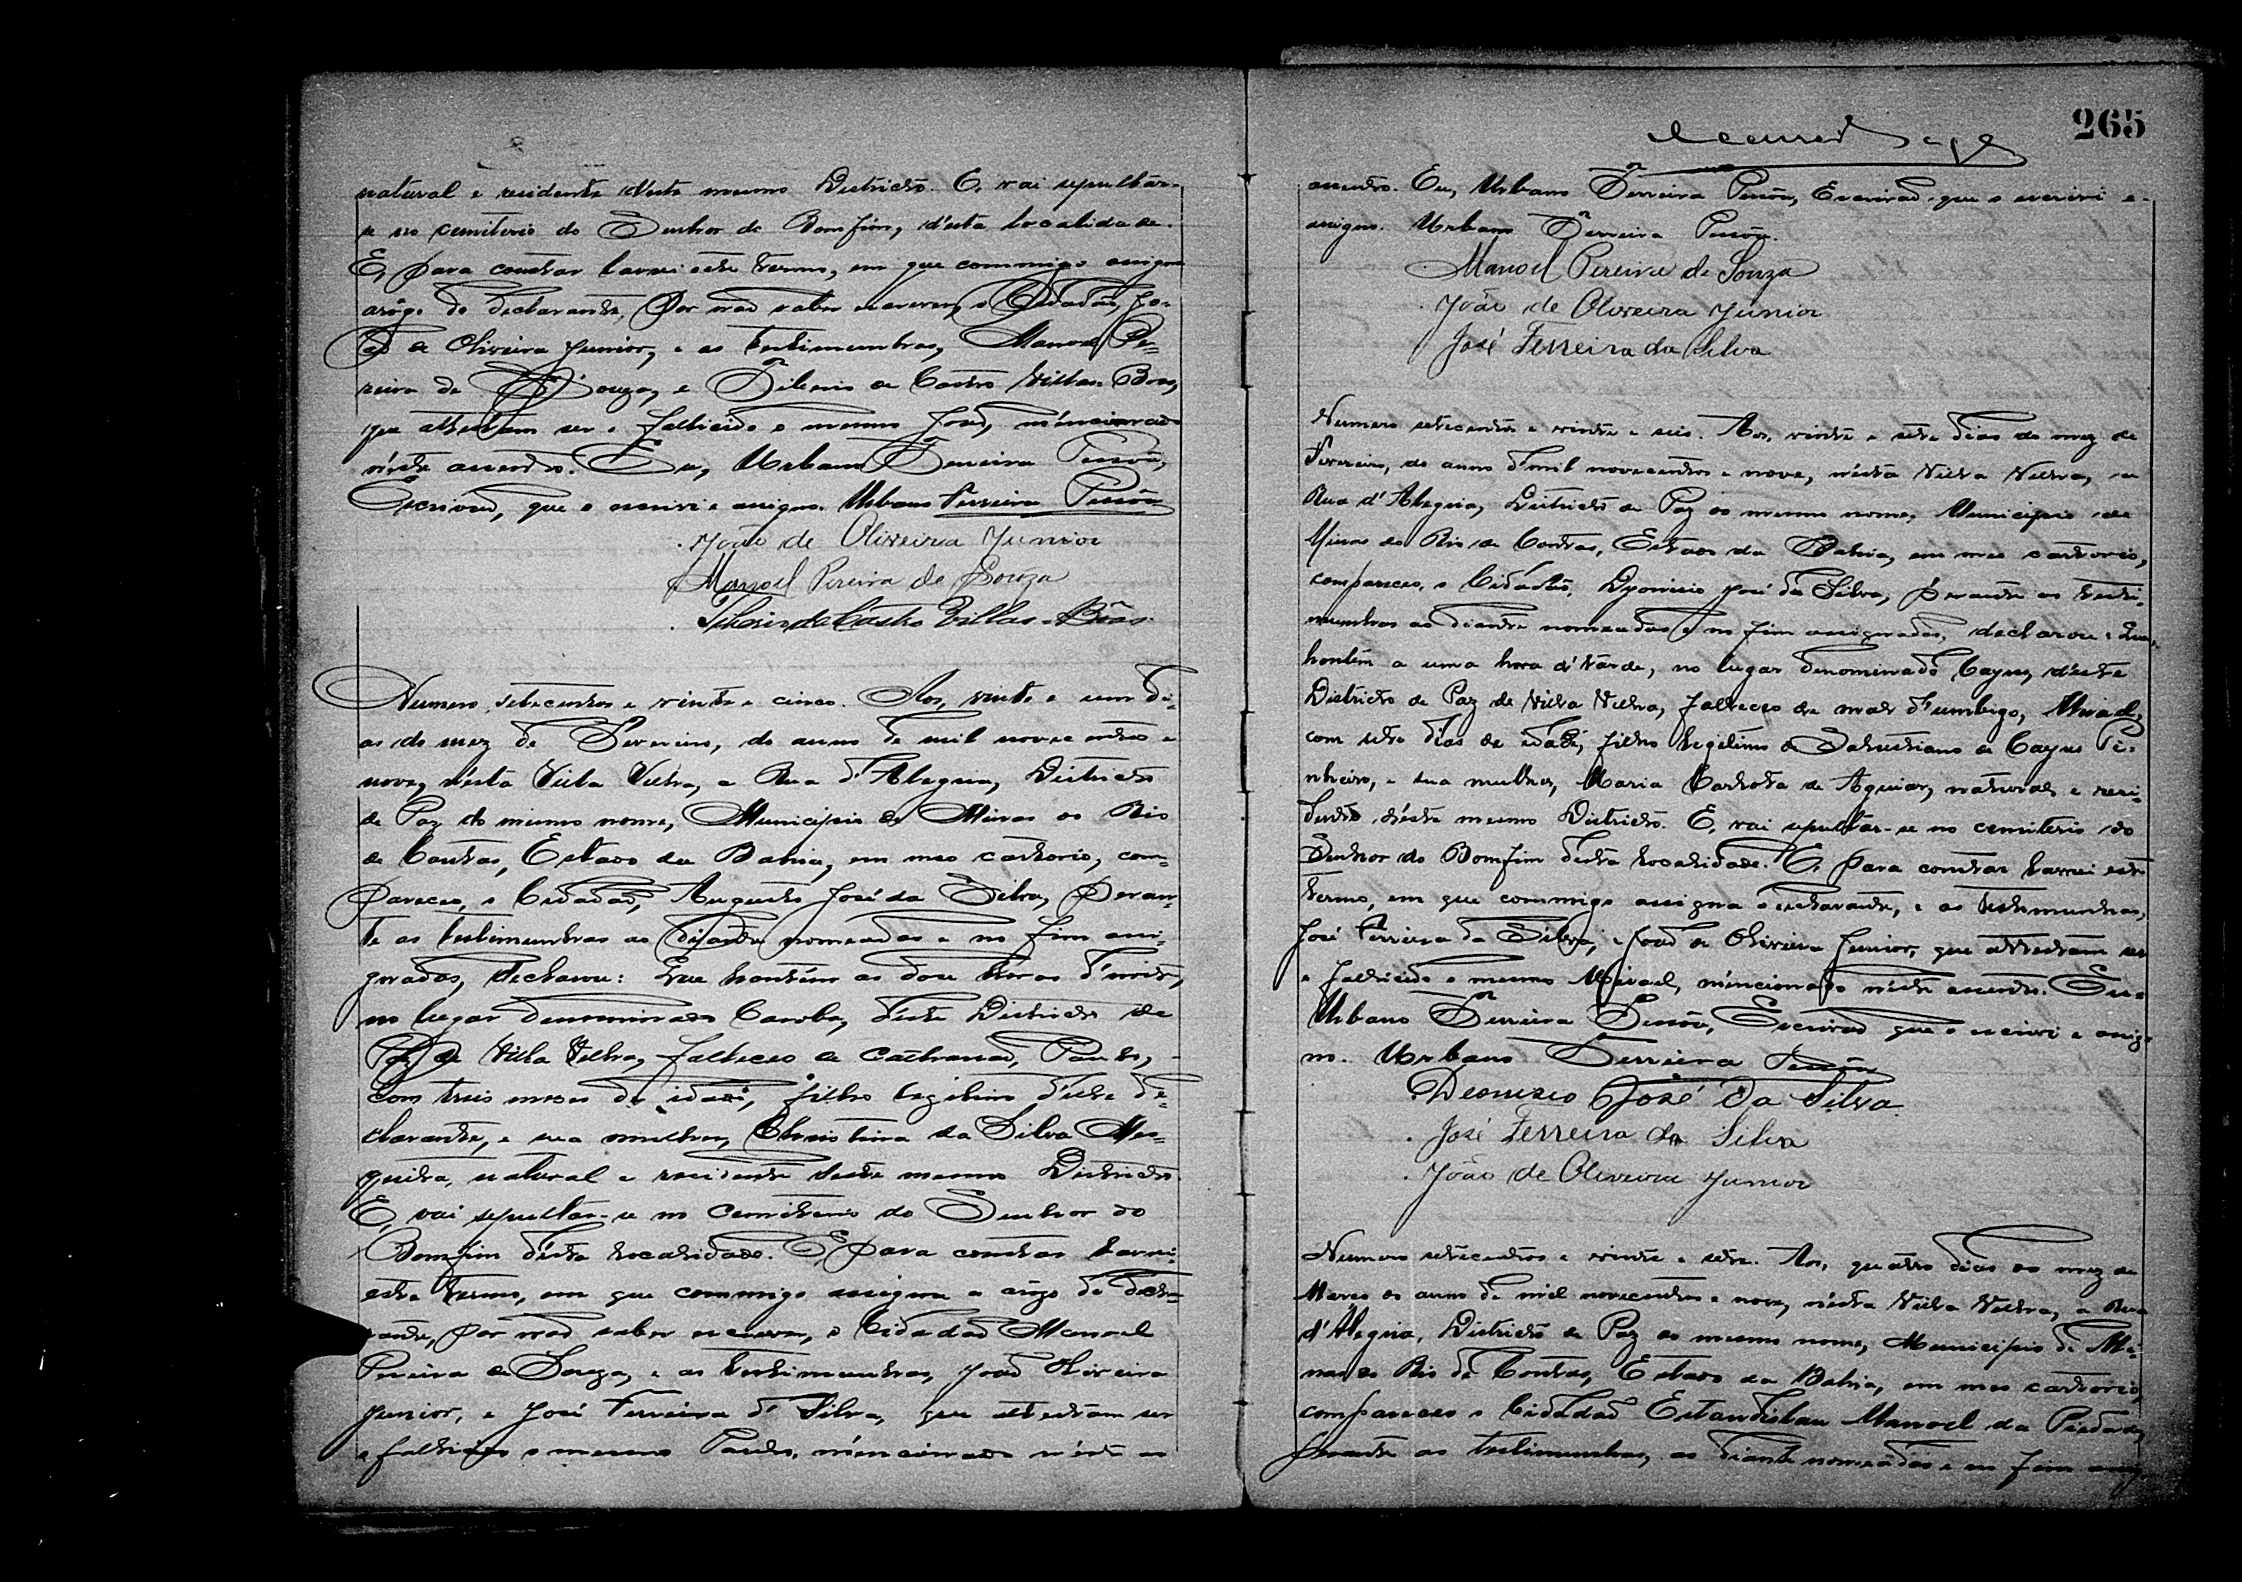 natural e residente deste mesmo Districto. E, vai sepultar-
se no cemiterio do Senhor do Bomfim, d'esta localidade.
E, para constar lavrei este termo, em que commigo assigna
arôgo do declarante, por não saber escrever, o Cidadão, Jo-
ão de Oliveira Junior, e as testimunhas, Manoel Pe-
reira de Souza, e Tiberio de Castro Villas-Boas,
que attestam ser o fallecido o mesmo José, mencionado
n'este assento. Eu, Urbano Ferreira Pessôa,
Escrivão, que o escrivi e assigno. Urbano Ferreira Pessôa
João de Oliveira Junior
Manoel Pereira de Souza
Tiberio de Castro Villas-Bôas
Numero, setecentos e vinte e cinco. Aos, vinte e um di-
as do mez de Fevereiro, do anno de mil novecentos e
nove, n'esta Villa Velha, a Rua d'Alegria, Districto
de Paz do mesmo nome, Municipio de Minas do Rio
de Contas, Estado da Bahia, em meo cartorio, com-
pareceo, o Cidadão, Augusto José da Silva, peran-
te as testimunhas ao diante nomeadas e no fim assi-
gnadas, declarou: Que hontém as doze hóras d'noite,
no lugar denominado Caroba, d'este Districto de
Paz de Villa Velha, falleceo de Cathararo, Paulo,
com treis mezes de idade, filho legitimo d'elle de-
clarante, e sua mulher, Christina da Silva Mes-
quita, natural e residente deste mesmo Districto.
E, vai sepultar-se no Cemiterio do Senhor do
Bomfim d'esta localidade. E, para constar lavrei
este termo, em que commigo assigna a rôgo do decla-
rante, por não saber escrever, o Cidadão Manoel
Pereira de Souza, e as testimunhas, João Oliveira
Junior, e José Ferreira d' Silva, que attestam ser
o fallecido o mesmo Paulo, mencionado n'este as
265
assento. Eu, Urbano Ferreira Pessôa, Escrivão, que o escrivi e
assigno. Urbano Ferreira Pessôa.
Manoel Pereira de Souza
João de Oliveira Junior
José Ferreira da Silva
Numero setecentos e vinte e seis. Aos, vinte e sete dias do mez de
Fevereiro, do anno d'mil novecentos e nove, n'esta Villa Velha, a
Rua d'Alegria, Districto de Paz do mesmo nome, Municipio de
Minas do Rio de Contas, Estado da Bahia, em meo cartorio,
compareceo, o Cidadão, Dyonisio José da Silva, perante as testi-
munhas ao diante nomeadas e no fim assignadas, declarou: Que,
hontém a uma hora d'tarde, no lugar denominado Cayus, d'este
Districto de Paz de Villa Velha, falleceo de mal d'umbigo, Mizael,
com sete dias de idade, filho legitimo de Salustiano de Cayus Pi-
nheiro, e sua mulher, Maria Carlota de Aguiar, natural, e resi-
dente d'este mesmo Districto. E, vai sepultar-se no cemiterio do
Senhor do Bomfim desta localidade. E, para constar lavrei este
termo, em que commigo assigna o declarante, e as testimunhas,
José Ferreira da Silva, e João de Oliveira Junior, que attestam ser
o fallecido o mesmo Mizael, mencionado n'este assento. Eu,
Urbano Ferreira Pessôa, Escrivão que o escrivi e assig-
no. Urbano Ferreira Pessôa
Deonizio José da Silva
José Ferreira da Silva
João de Oliveira Junior
Numero setecentos e vinte e sete. Aos, quatro dias do mez de
Março do anno de mil novecentos e nove, n'esta Villa Velha, a Rua
d'Alegria, Districto de Paz do mesmo nome, Municipio de Mi-
nas do Rio de Contas, Estado da Bahia, em meo cartorio,
compareceo o Cidadão Estandislau Manoel da Piedade,
perante as testimunhas, ao diante nomeadas e no fim assig-